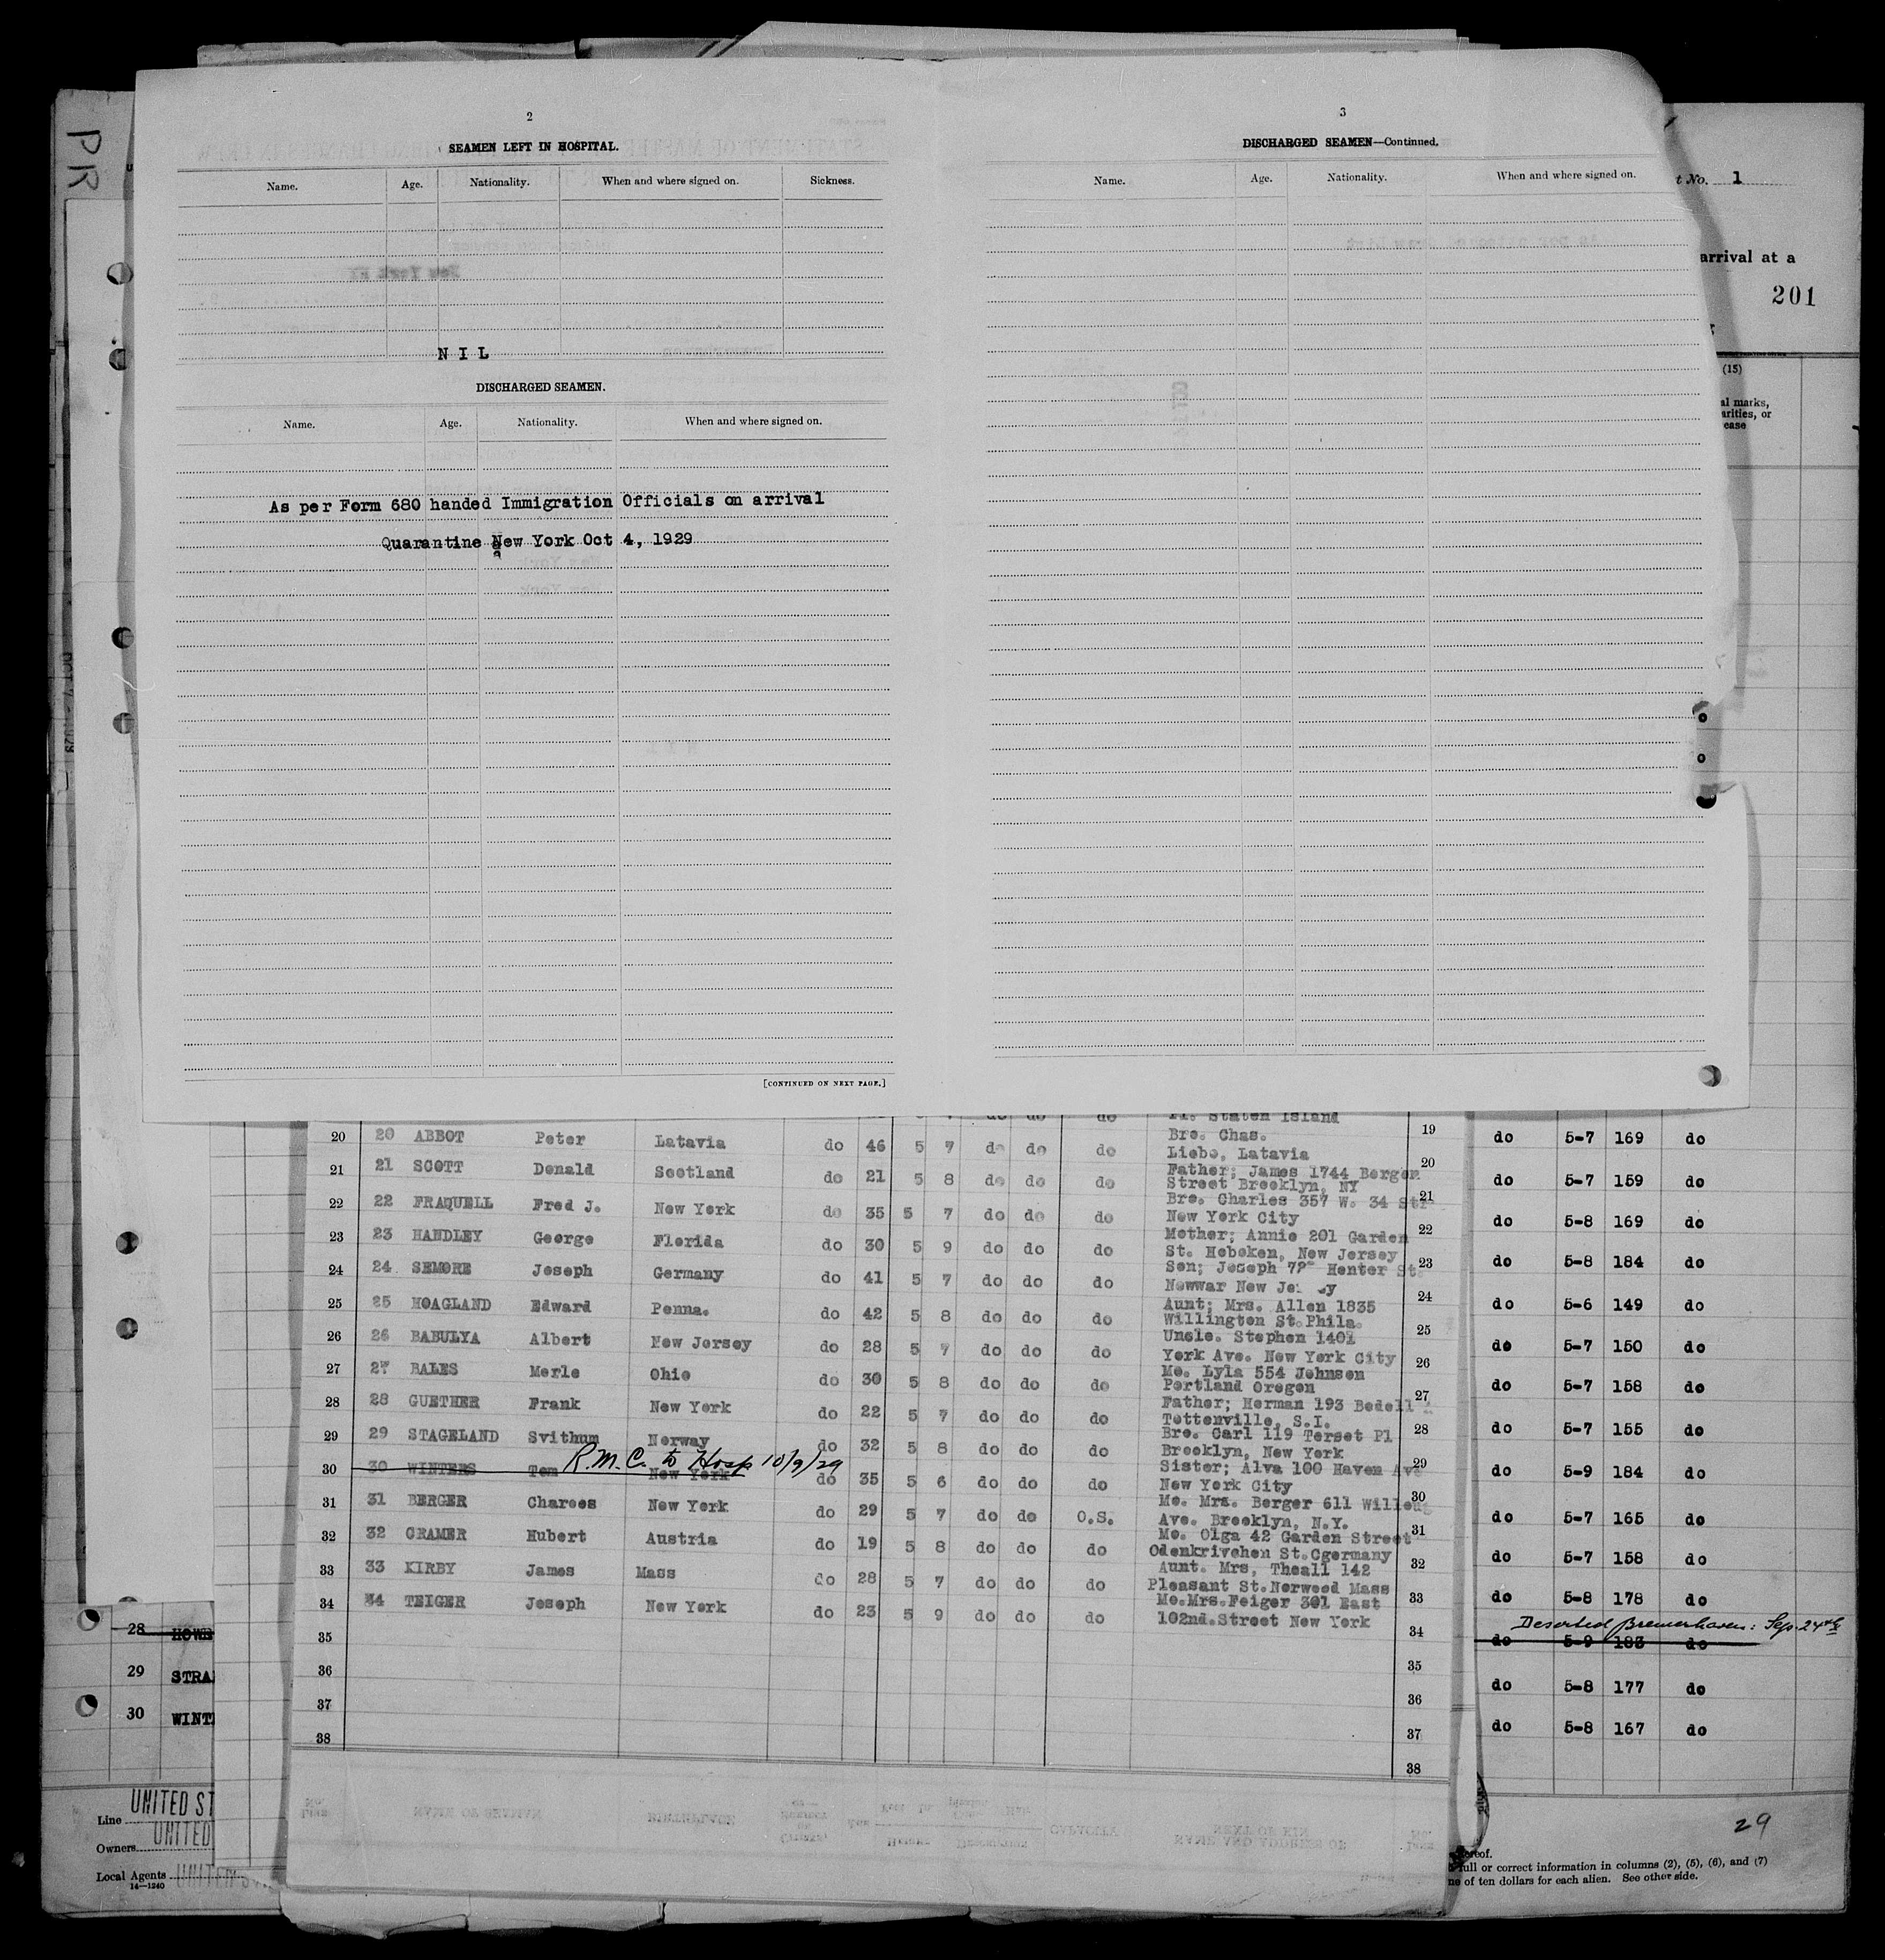 PR
2
SEAMEN LEFT IN HOSPITAL.
Name. Age. Nationality. When and where signed on. Sickness.
N I L
DISCHARGED SEAMEN.
Name. Age. Nationality. When and where signed on.
As per Form 680 handed Immigration Officials on arrival
Quarantine New York Oct 4, 1929
[CONTINUED ON NEXT PAGE.]
3
DISCHARGED SEAMEN—Continued.
Name. Age. Nationality. When and where signed on.
t No. 1
arrival at a
201
(15)
al marks,
arities, or
ease
Pl. Staten Island
20 20 ABBOT Peter Latavia do 46 5 7 do do do Bro. Chas. 19
Liebo, Latavia
21 21 SCOTT Donald Scotland do 21 5 8 do do do Father; James 1744 Bergen 20
Street Brooklyn, NY
22 22 FRAQUELL Fred J. New York do 35 5 7 do do do Bro. Charles 357 W. 34 Str 21
New York City
23 23 HANDLEY George Florida do 30 5 9 do do do Mother; Annie 201 Garden 22
St. Hoboken, New Jersey
24 24 SEMORE Joseph Germany do 41 5 7 do do do Son; Joseph Henter St 23
Newwar New
25 25 HOAGLAND Edward Penna. do 42 5 8 do do do Aunt; Mrs. Allen 1835 24
Willington St.Phila.
26 26 BABULYA Albert New Jersey do 28 5 7 do do do Uncle. Stephen 1401 25
York Ave. New York City
27 27 BALES Merle Ohio do 30 5 8 do do do Mo. Lyla 554 Johnson 26
Portland Oregon
28 28 GUETHER Frank New York do 22 5 7 do do do Father; Herman 193 Bedell 27
Tottenville, S.I.
29 29 STAGELAND Svithum Norway do 32 5 8 do do do Bro. Carl 119 Terset Pl 28
Brooklyn, New York
R.M.C. to Hosp 10/9/29
30 30 WINTERS Tom New York do 35 5 6 do do do Sister; Alva 100 Haven Ave 29
New York City
31 31 BERGER Charees New York do 29 5 7 do do O.S. Mo. Mrs. Berger 611 Willoug 30
Ave. Brooklyn, N.Y.
32 32 CRAMER Hubert Austria do 19 5 8 do do do Mo. Olga 42 Garden Street 31
Odenkrivehen St.Cgermany
33 33 KIRBY James Mass do 28 5 7 do do do Aunt. Mrs, Theall 142 32
Pleasant St.Norwood Mass
34 34 TEIGER Joseph New York do 23 5 9 do do do Mo.Mrs.Feiger 301 East 33
102nd.Street New York
35 34
36 35
37 36
38 37
38
do 5-7 169 do
do 5-7 159 do
do 5-8 169 do
do 5-8 184 do
do 5-6 149 do
do 5-7 150 do
do 5-7 158 do
do 5-7 155 do
do 5-9 184 do
do 5-7 165 do
do 5-7 158 do
do 5-8 178 do
Deserted Bremerhaven: Sep. 24th
do 5-9 183 do
do 5-8 177 do
do 5-8 167 do
28 HOWE
29 STRA
30 WINT
Line UNITED ST
Owners UNITED
Local Agents UNITED S
14—1240
29
ereof.
full or correct information in columns (2), (5), (6), and (7)
ne of ten dollars for each alien. See other side.